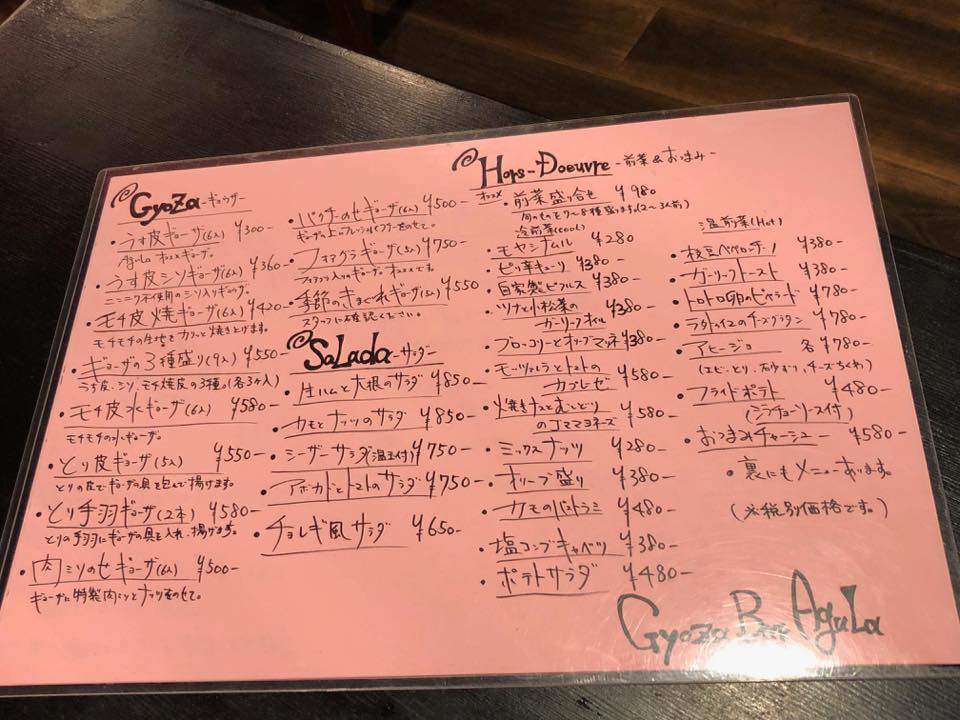 GyoZa -ギョウザ-
・うす皮ギョーザ(6入) ¥300-
AguLa オススメギョーザ。
・うす皮シソギョーザ(6入) ¥360-
ニンニク不使用のシソ入りギョウザ。
・モチ皮焼ギョーザ(6入) ¥420-
モチモチの生地をカリッと焼き上げます。
・ギョーザの3種盛り(9入) ¥550-
うす皮、シソ、モチ焼皮の3種。(各3ヶ入)
・モチ皮水ギョーザ(6入) ¥580-
モチモチの水ギョーザ。
・とり皮ギョーザ(5入) ¥550-
とりの皮でギョーザの具を包んで揚げます。
・とり手羽ギョーザ(2本) ¥580-
とりの手羽にギョーザの具を入れ、揚げます。
・肉ミソのせギョーザ(6入) ¥500-
ギョーザに特製肉ミソとナッツをのせて。
・パクチーのせギョーザ(6入) ¥500-
ギョーザの上にフレッシュパクチーをのせて。
・フォアグラギョーザ(5入) ¥750-
フォアグラ入りのギョーザ。オススメです。
・季節の気まぐれギョーザ(5入) ¥550
スタッフに確認ください。
SaLada -サラダ-
・生ハムと大根のサラダ ¥850-
・カモとナッツのサラダ ¥850-
・シーザーサラダ(温玉付) ¥750-
・アボカドとトマトのサラダ ¥750-
・チョレギ風サラダ ¥650-
Hors-Doeuvre -前菜&おつまみ-
オススメ ・前菜盛り合せ ¥980
旬のものと7〜8種盛ります。(2〜3人前)
冷前菜(cool)
・モヤシナムル ¥280
・ピリ辛キューリ ¥380-
・自家製ピクルス ¥380-
・ツナと小松菜のガーリックオイル ¥380-
・ブロッコリーとオーブマッネ ¥380-
・モッツァレラとトマトのカプレーゼ ¥580-
・焼きナスとむしどりのゴママヨネーズ ¥580-
・ミックスナッツ ¥280-
・オリーブ盛り ¥380-
・カモのパストラミ ¥480-
・塩コンブキャベツ ¥380-
・ポテトサラダ ¥480-
温前菜(Hot)
・枝豆ペペロンチーノ ¥380-
・ガーリックトースト ¥380-
・トロトロ卵のピペラード ¥780-
・ラタトゥイユのチーズグラタン ¥780-
・アヒージョ 各¥780-
(エビ・とり、石砂ずり、チーズちくわ)
・フライドポテト ¥480-
(シラチャーソース付)
・おつまみチャーシュー ¥580-
・裏にもメニューあります。
(※税別価格です。)
GyoZa Bar AguLa